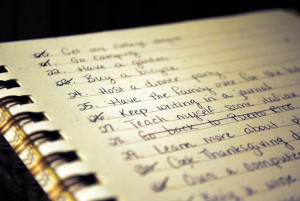 Get my college degree
Go camping
Have a garden
Buy a bicycle
24. Host a dinner party
25. Have the family over for the
26. Keep writing in a journal
27. Teach myself some italian
28. Go back to Puerto Rico
29. Learn more about
Cook Thanksgiving
Own a computer
Buy a